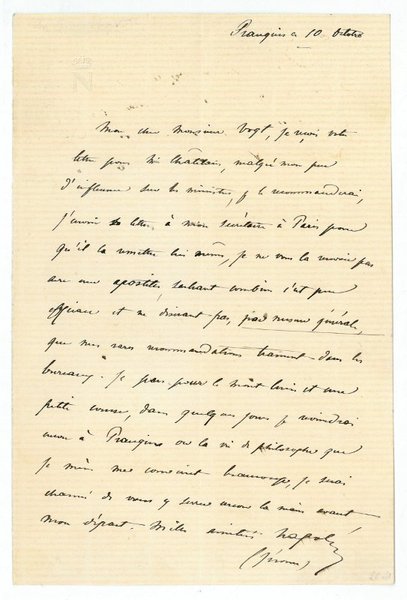 Prangins ce 10 Octobre
Mon cher Monsieur Vogt, je reçois votre
lettre pour Mr Châtelain, malgré mon peu
d'influence sur les ministres, je le recommanderai,
j'envoie sa lettre, à mon secrétaire à Paris pour
qu'il la remette lui même, je ne vous la renvoie pas
avec une apostille sachant combien c'est peu
efficace et ne désirant pas, par mesure générale,
que mes rares recommandations trainent dans les
bureaux. Je pars pour le mont et une
petite course, dans quelques jours je reviendrai
encore à Prangins où la vie de philosophe que
je mène me convient beaucoup, je serai
charmé de vous y serrer encore la main avant
mon départ. Milles amitiés Napoléon
(Jérome)